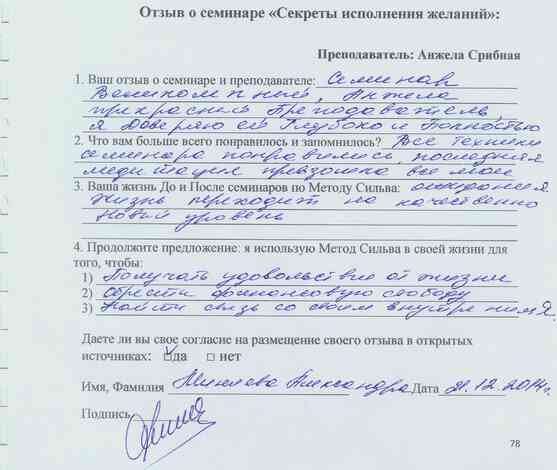 Отзыв о семинаре «Секреты исполнения желаний»:
Преподаватель: Анжела Срибная
1. Ваш отзыв о семинаре и преподавателе: Семинар
Великолепный, Анжела
прекрасный Преподаватель,
я Доверяю ей Глубоко и Полностью
2. Что вам больше всего понравилось и запомнилось? Все техники
семинара понравились, последняя
медитация превзошла все мои
3. Ваша жизнь До и После семинаров по Методу Сильва: ожидания.
Жизнь переходит на качественно
Новый уровень
4. Продолжите предложение: я использую Метод Сильва в своей жизни для
того, чтобы:
1) Получать удовольствие от жизни
2) Обрести финансовую свободу
3) Найти связь со своим внутренним Я.
Даете ли вы свое согласие на размещение своего отзыва в открытых
источниках: □да □ нет
Имя, Фамилия Александра Дата 21.12.2014г.
Подпись
78